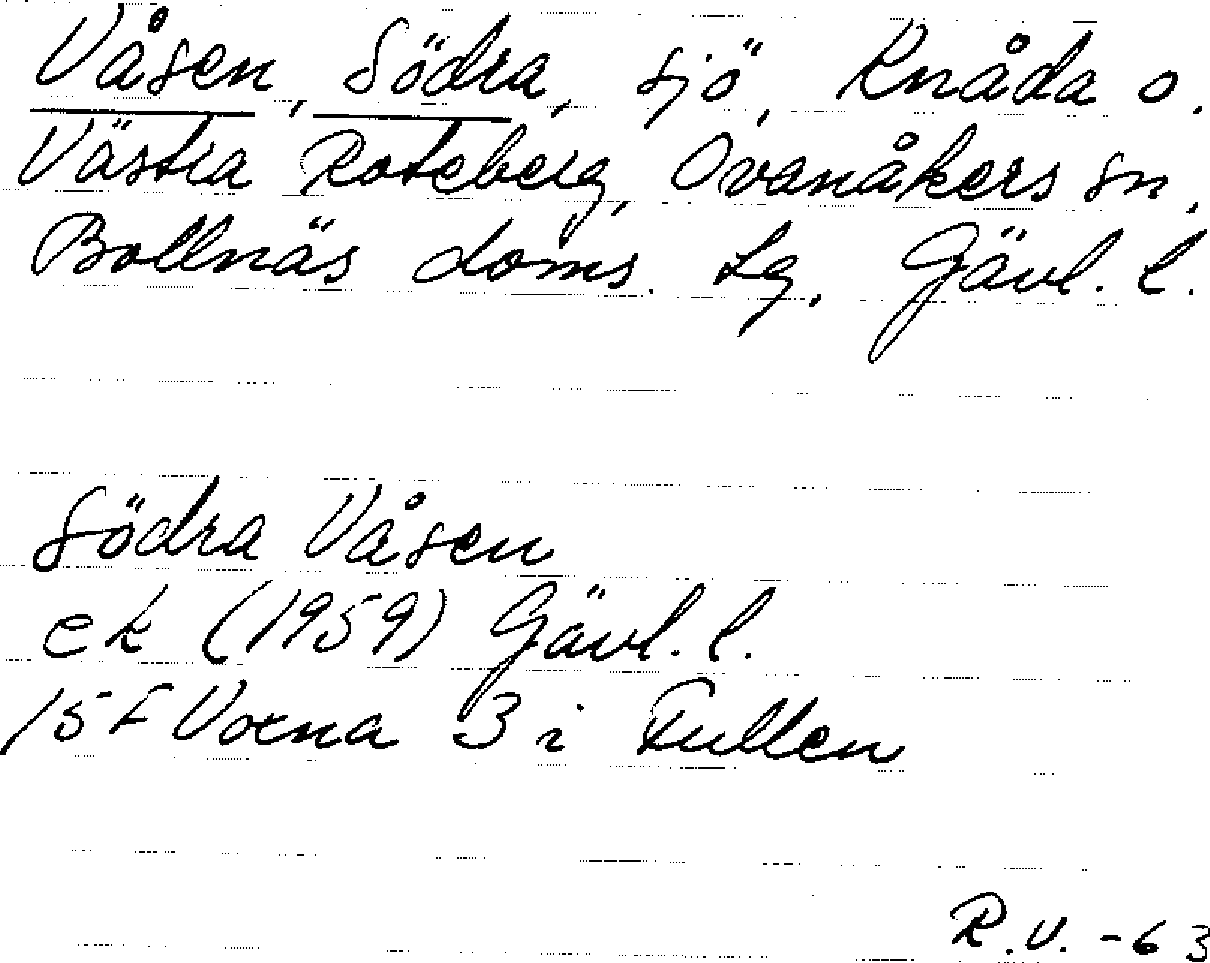 Våsen, Södra, sjö, Knåda o.
Västra Roteberg, Ovanåkers sn,
Bollnäs doms. Lg, Gävl. l.
Södra Våsen
ek (1959) Gävl. l.
15F Voxna 3 i Tullen
R.V. -63